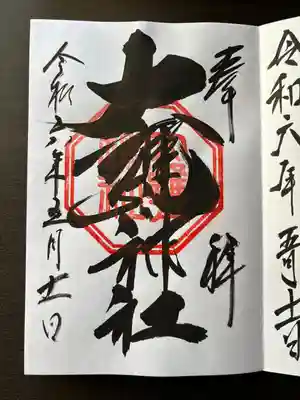 令和六年
奉拝
大甕神社
令和六年五月十一日